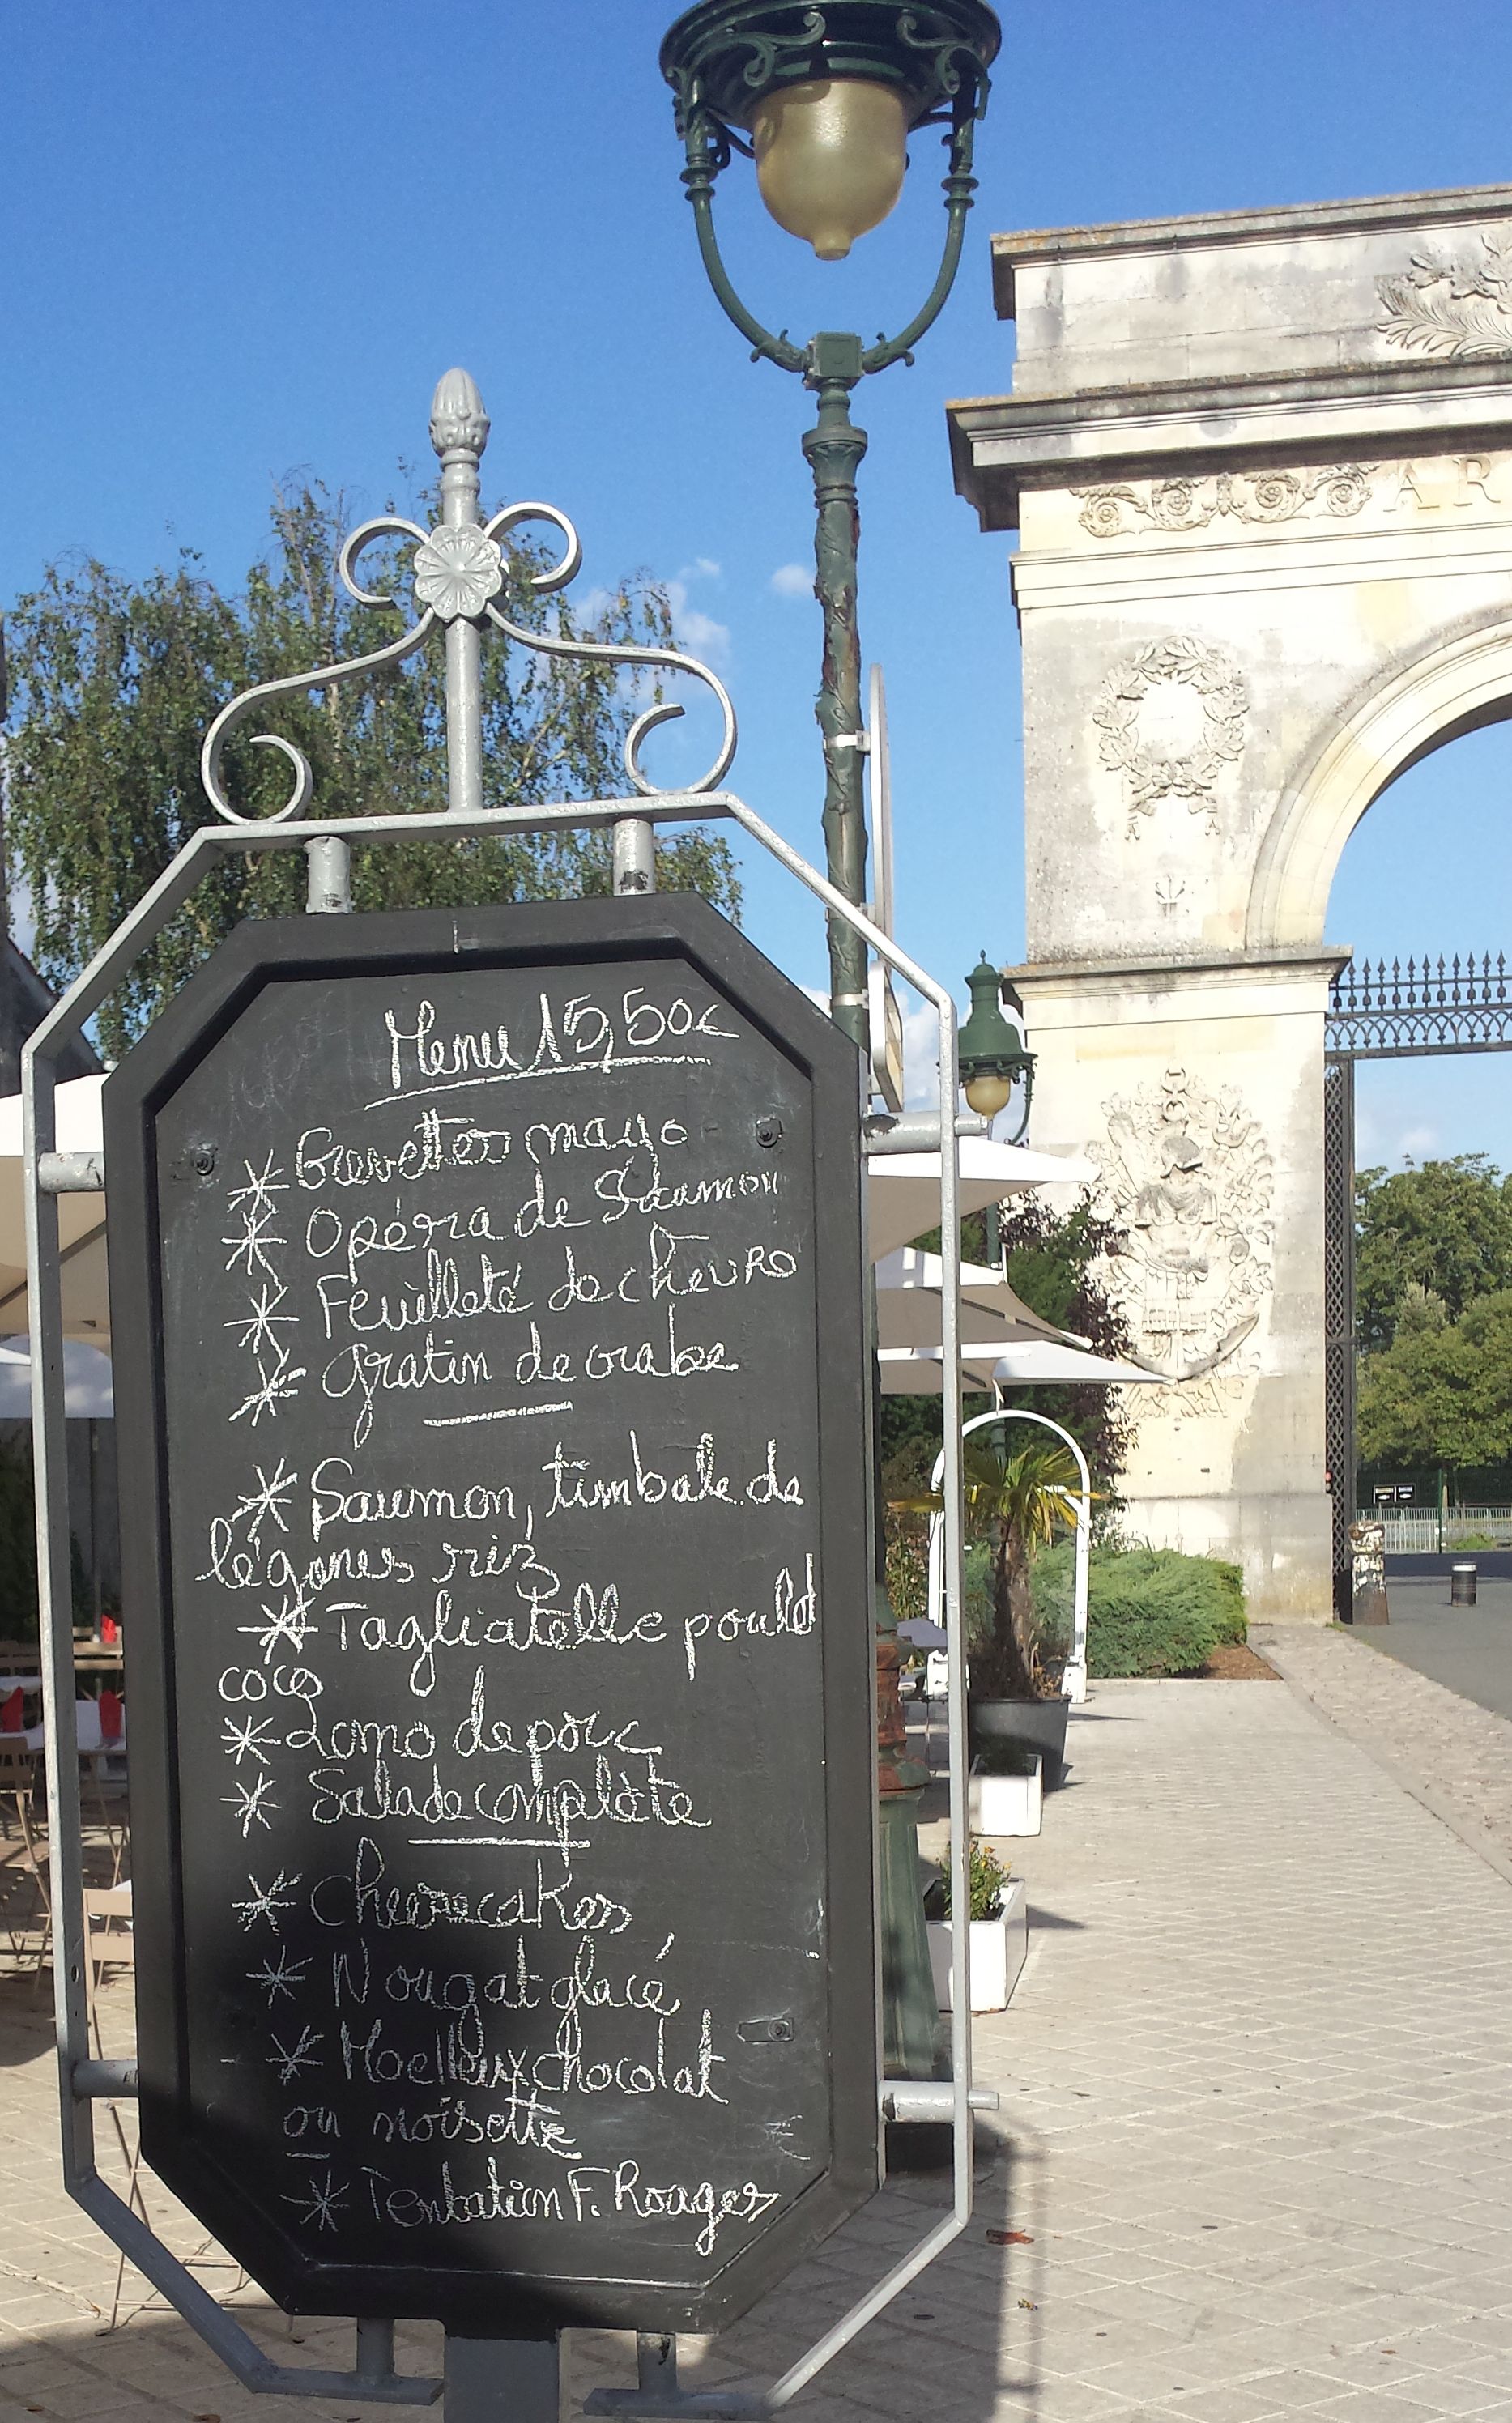 Menu 15,50€
* Crevettes mayo
* Opéra de Saumon
* Feuilleté de chèvre
* gratin de crabe
* Saumon, timbale de
légumes riz
* Tagliatelle poulet
coco
* Lomo de porc
* Salade complète
* Cheesecakes
* Nougat glacé
* Moelleux chocolat
ou noisette
* Tentation F. Rouges
AR